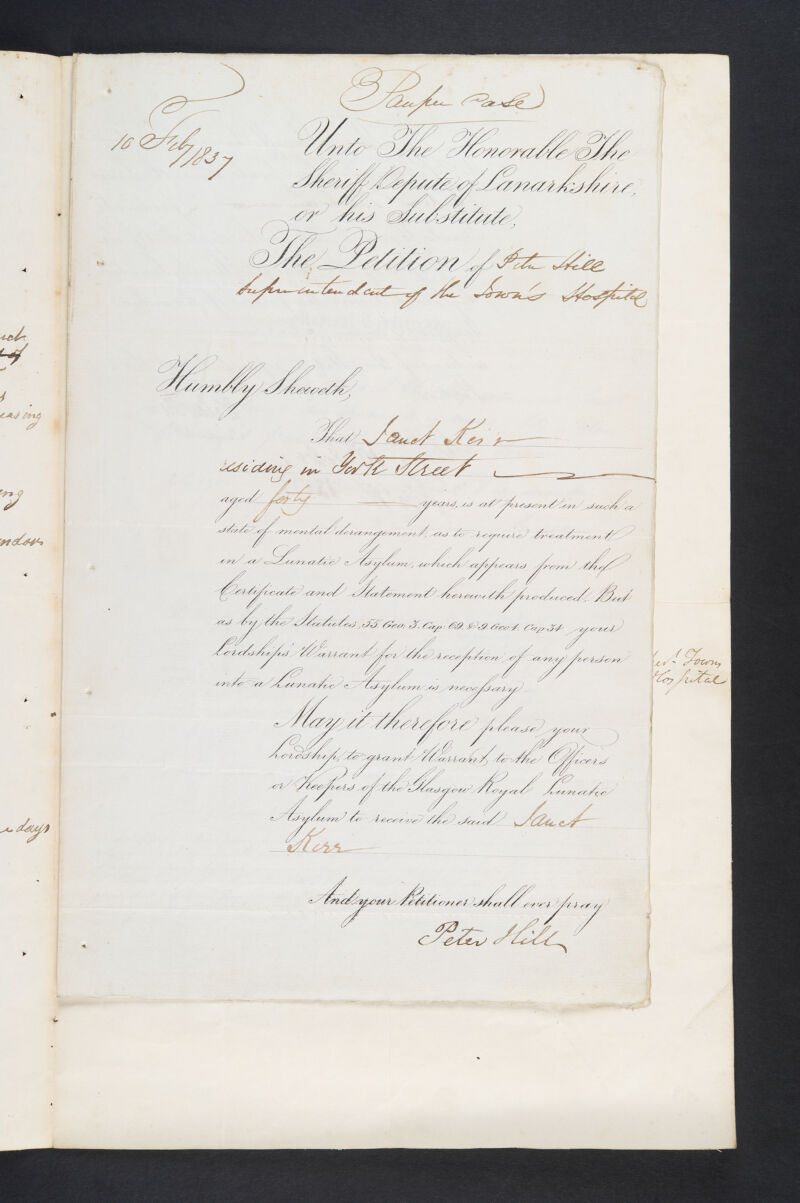 Pauper case
10 Feby 1837
Unto The Honorable The
Sheriff Depute of Lanarkshire,
or his Substitute,
The Petition of Peter Hill
Superintendent of the Town's Hospital
Humbly Sheweth,
That Janet Kerr
residing in York Street
aged forty years, is at present in such a
state of mental derangement, as to require treatment
in a Lunatic Asylum, which appears from the
Certificate and Statement herewith produced. But
as by the Statutes, 55 Geo. 3. Cap. 69. & 9. Geo 4. Cap. 34 your
Lordship's Warrant for the reception of any person
into a Lunatic Asylum is necessary
May it therefore please your
Lordship, to grant Warrant, to the Officers
or Keepers of the Glasgow Royal Lunatic
Asylum to receive the said Janet
Kerr
And your Petitioner shall ever pray
Peter Hill
Towns
Hospital
easing
days